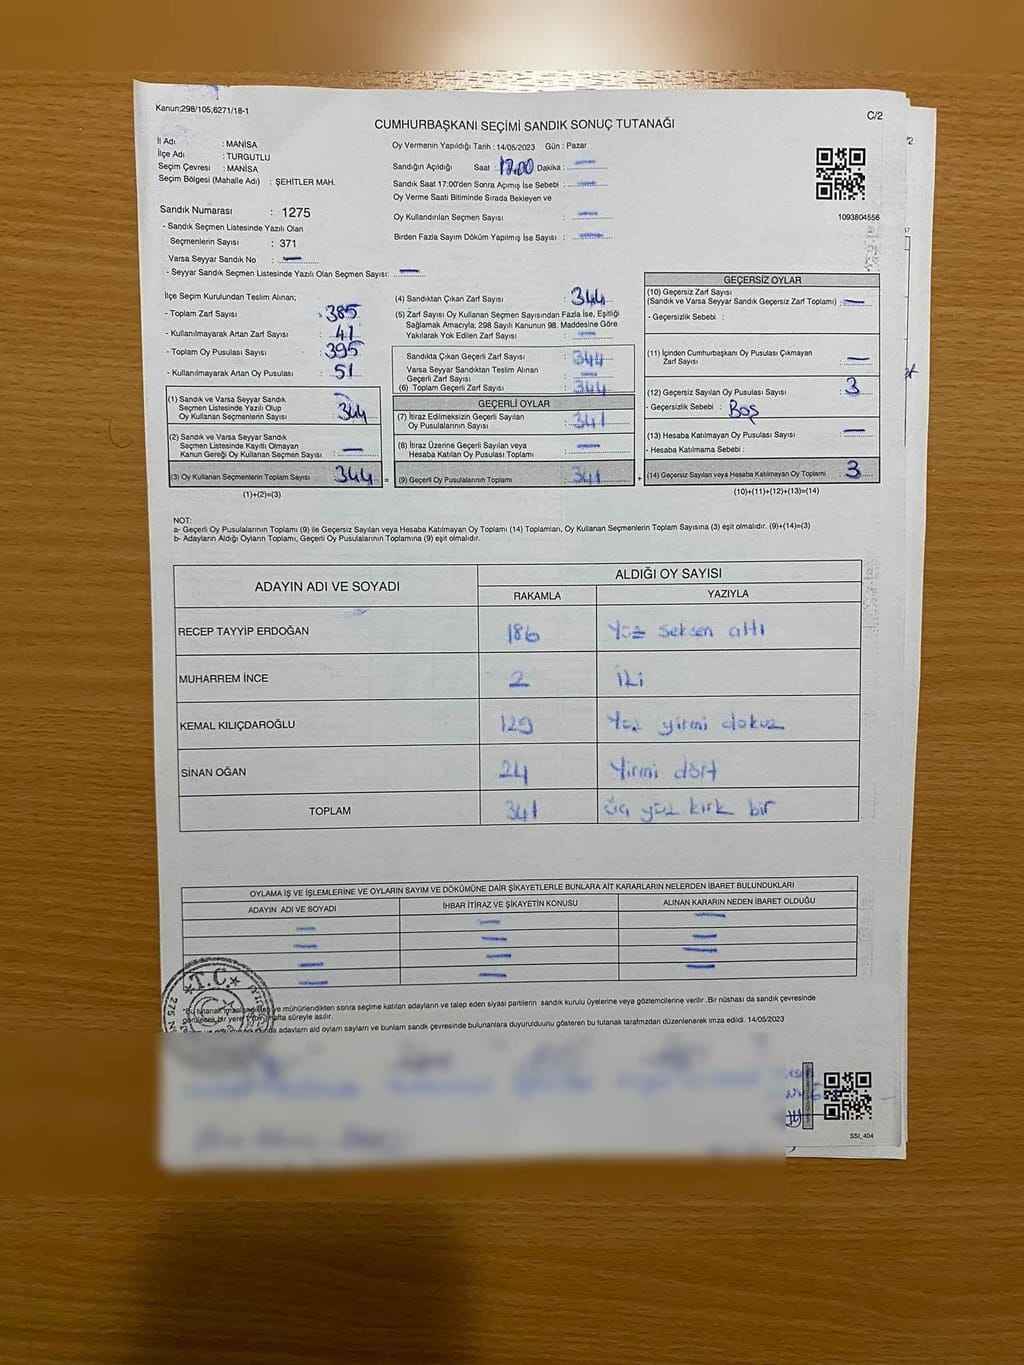 Kanun;298/105,6271/18-1
C/2
CUMHURBAŞKANI SEÇİMİ SANDIK SONUÇ TUTANAĞI
İl Adı : MANİSA
İlçe Adı : TURGUTLU
Seçim Çevresi : MANİSA
Seçim Bölgesi (Mahalle Adı) : ŞEHİTLER MAH.
Sandık Numarası : 1275
- Sandık Seçmen Listesinde Yazılı Olan
Seçmenlerin Sayısı : 371
Varsa Seyyar Sandık No : —
- Seyyar Sandık Seçmen Listesinde Yazılı Olan Seçmen Sayısı: —
Oy Vermenin Yapıldığı Tarih : 14/05/2023 Gün : Pazar
Sandığın Açıldığı Saat : 17.00 Dakika : —
Sandık Saat 17:00'den Sonra Açımış İse Sebebi : —
Oy Verme Saati Bitiminde Sırada Bekleyen ve
Oy Kullandırılan Seçmen Sayısı : —
Birden Fazla Sayım Döküm Yapılmış İse Sayısı : —
1093804556
İlçe Seçim Kurulundan Teslim Alınan;
- Toplam Zarf Sayısı : 385
- Kullanılmayarak Artan Zarf Sayısı : 41
- Toplam Oy Pusulası Sayısı : 395
- Kullanılmayarak Artan Oy Pusulası : 51
(1) Sandık ve Varsa Seyyar Sandık
Seçmen Listesinde Yazılı Olup
Oy Kullanan Seçmenlerin Sayısı : 344
(2) Sandık ve Varsa Seyyar Sandık
Seçmen Listesinde Kayıtlı Olmayan
Kanun Gereği Oy Kullanan Seçmen Sayısı : —
(3) Oy Kullanan Seçmenlerin Toplam Sayısı : 344 =
(1)+(2)=(3)
(4) Sandıktan Çıkan Zarf Sayısı : 344
(5) Zarf Sayısı Oy Kullanan Seçmen Sayısından Fazla İse, Eşitliği
Sağlamak Amacıyla; 298 Sayılı Kanunun 98. Maddesine Göre
Yakılarak Yok Edilen Zarf Sayısı : —
Sandıkta Çıkan Geçerli Zarf Sayısı : 344
Varsa Seyyar Sandıktan Teslim Alınan
Geçerli Zarf Sayısı : —
(6) Toplam Geçerli Zarf Sayısı : 344
GEÇERLİ OYLAR
(7) İtiraz Edilmeksizin Geçerli Sayılan
Oy Pusulalarının Sayısı : 341
(8) İtiraz Üzerine Geçerli Sayılan veya
Hesaba Katılan Oy Pusulası Toplamı : —
(9) Geçerli Oy Pusulalarının Toplamı : 341 +
GEÇERSİZ OYLAR
(10) Geçersiz Zarf Sayısı
(Sandık ve Varsa Seyyar Sandık Geçersiz Zarf Toplamı) : —
- Geçersizlik Sebebi :
(11) İçinden Cumhurbaşkanı Oy Pusulası Çıkmayan
Zarf Sayısı : —
(12) Geçersiz Sayılan Oy Pusulası Sayısı : 3
- Geçersizlik Sebebi : Boş
(13) Hesaba Katılmayan Oy Pusulası Sayısı : —
- Hesaba Katılmama Sebebi :
(14) Geçersiz Sayılan veya Hesaba Katılmayan Oy Toplamı : 3
(10)+(11)+(12)+(13)=(14)
NOT:
a- Geçerli Oy Pusulalarının Toplamı (9) ile Geçersiz Sayılan veya Hesaba Katılmayan Oy Toplamı (14) Toplamları, Oy Kullanan Seçmenlerin Toplam Sayısına (3) eşit olmalıdır. (9)+(14)=(3)
b- Adayların Aldığı Oyların Toplamı, Geçerli Oy Pusulalarının Toplamına (9) eşit olmalıdır.
ADAYIN ADI VE SOYADI ALDIĞI OY SAYISI
RAKAMLA YAZIYLA
RECEP TAYYİP ERDOĞAN 186 Yüz seksen altı
MUHARREM İNCE 2 İki
KEMAL KILIÇDAROĞLU 129 Yüz yirmi dokuz
SİNAN OĞAN 24 Yirmi dört
TOPLAM 341 Üç yüz kırk bir
OYLAMA İŞ VE İŞLEMLERİNE VE OYLARIN SAYIM VE DÖKÜMÜNE DAİR ŞİKAYETLERLE BUNLARA AİT KARARLARIN NELERDEN İBARET BULUNDUKLARI
ADAYIN ADI VE SOYADI İHBAR İTİRAZ VE ŞİKAYETİN KONUSU ALINAN KARARIN NEDEN İBARET OLDUĞU
T.C.
mühürlendikten sonra seçime katılan adayların ve talep eden siyasi partilerin sandık kurulu üyelerine veya gözlemcilerine verilir .Bir nüshası da sandık çevresinde
hafta süreyle asılır.
adayların ald oyların sayların ve bunların sandık çevresinde bulunanlara duyurulduunu gösteren bu tutanak tarafmzdan düzenlenerek imza edildi. 14/05/2023
SSI_404